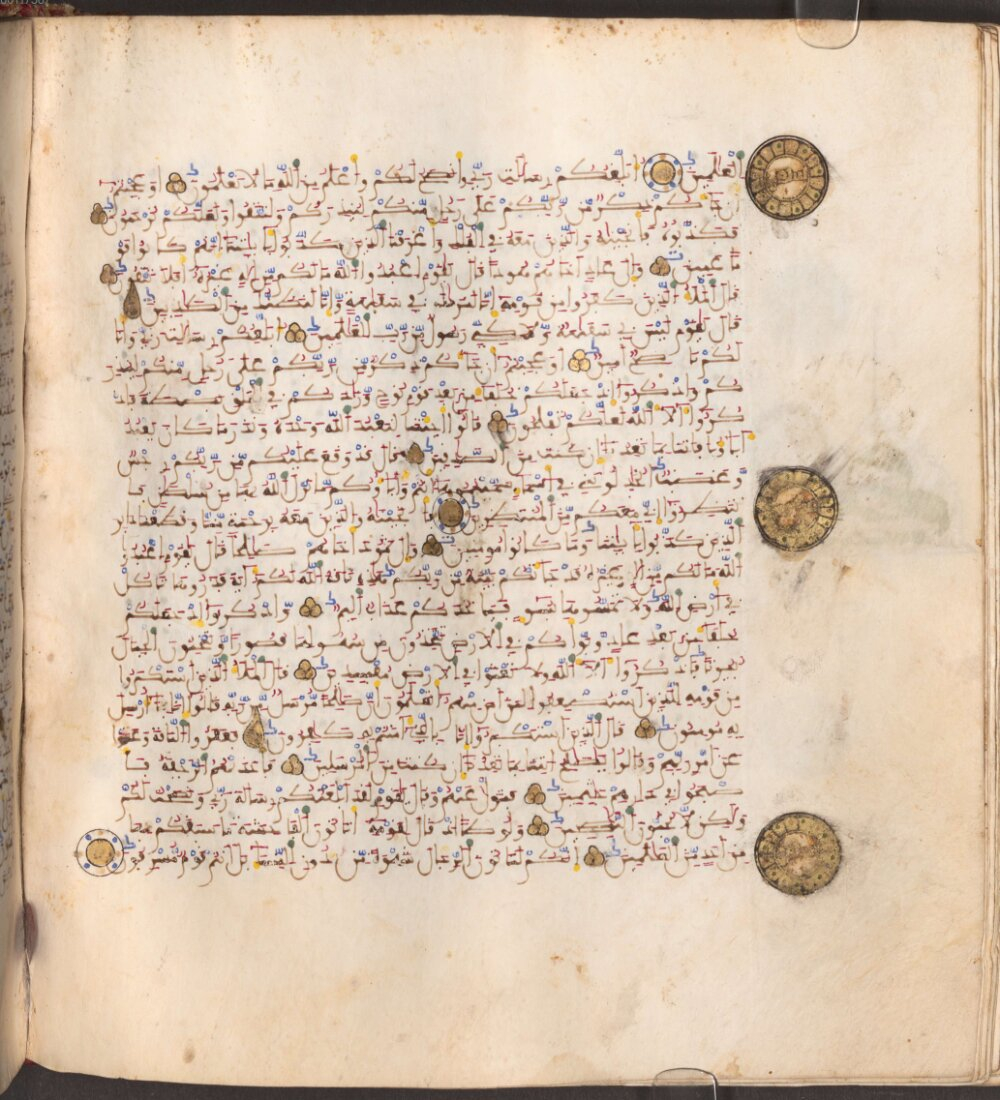 العلمين ابلغكم رسلت ربي وانصح لكم واعلم من الله ما لا تعلمون او عجبتم
ان جاكم ذكر من ربكم على رجل منكم لينذركم ولتتقوا ولعلكم ترحمون
فكذبوه فانجينه والذين معه في الفلك واغرقنا الذين كذبوا بايتنا انهم كانوا قو
ما عمين والى عاد اخاهم هودا قال يقوم اعبدوا الله ما لكم من اله غيره افلا تتقون
قال الملا الذين كفروا من قومه انا لنريك في سفاهة وانا لنظنك من الكذبين
قال يقوم ليس بي سفاهة ولكني رسول من رب العلمين ابلغكم رسلت ربي وانا
لكم ناصح امين او عجبتم ان جاكم ذكر من ربكم على رجل منكم لينذر
كم واذكروا اذ جعلكم خلفا من بعد قوم نوح وزادكم في الخلق بصطة فاذ
كروا الا الله لعلكم تفلحون قالوا اجيتنا لنعبد الله وحده ونذر ما كان يعبد
اباونا فاتنا بما تعدنا ان كنت من الصدقين قال قد وقع عليكم من ربكم رجس
وغضب اتجدلونني في اسما سميتموها انتم واباوكم ما نزل الله بها من سلطن فا
نتظروا اني معكم من المنتظرين فانجينه والذين معه برحمة منا وقطعنا دابر
الذين كذبوا بايتنا وما كانوا مومنين والى ثمود اخاهم صلحا قال يقوم اعبدوا
الله ما لكم من اله غيره قد جاتكم بينة من ربكم هذه ناقة الله لكم اية فذروها تاكل
في ارض الله ولا تمسوها بسو فياخذكم عذاب اليم واذكروا اذ جعلكم
خلفا من بعد عاد وبواكم في الارض تتخذون من سهولها قصورا وتنحتون الجبال
بيوتا فاذكروا الا الله ولا تعثوا في الارض مفسدين قال الملا الذين استكبروا
من قومه للذين استضعفوا لمن امن منهم اتعلمون ان صلحا مرسل من ربه قالوا انا بما ارسل
به مومنون قال الذين استكبروا انا بالذي امنتم به كفرون فعقروا الناقة وعتوا
عن امر ربهم وقالوا يصلح ايتنا بما تعدنا ان كنت من المرسلين فاخذتهم الرجفة فا
صبحوا في دارهم جثمين فتولى عنهم وقال يقوم لقد ابلغتكم رسالة ربي ونصحت لكم
ولكن لا تحبون النصحين ولوطا اذ قال لقومه اتاتون الفحشة ما سبقكم بها
من احد من العلمين انكم لتاتون الرجال شهوة من دون النسا بل انتم قوم مسرفون